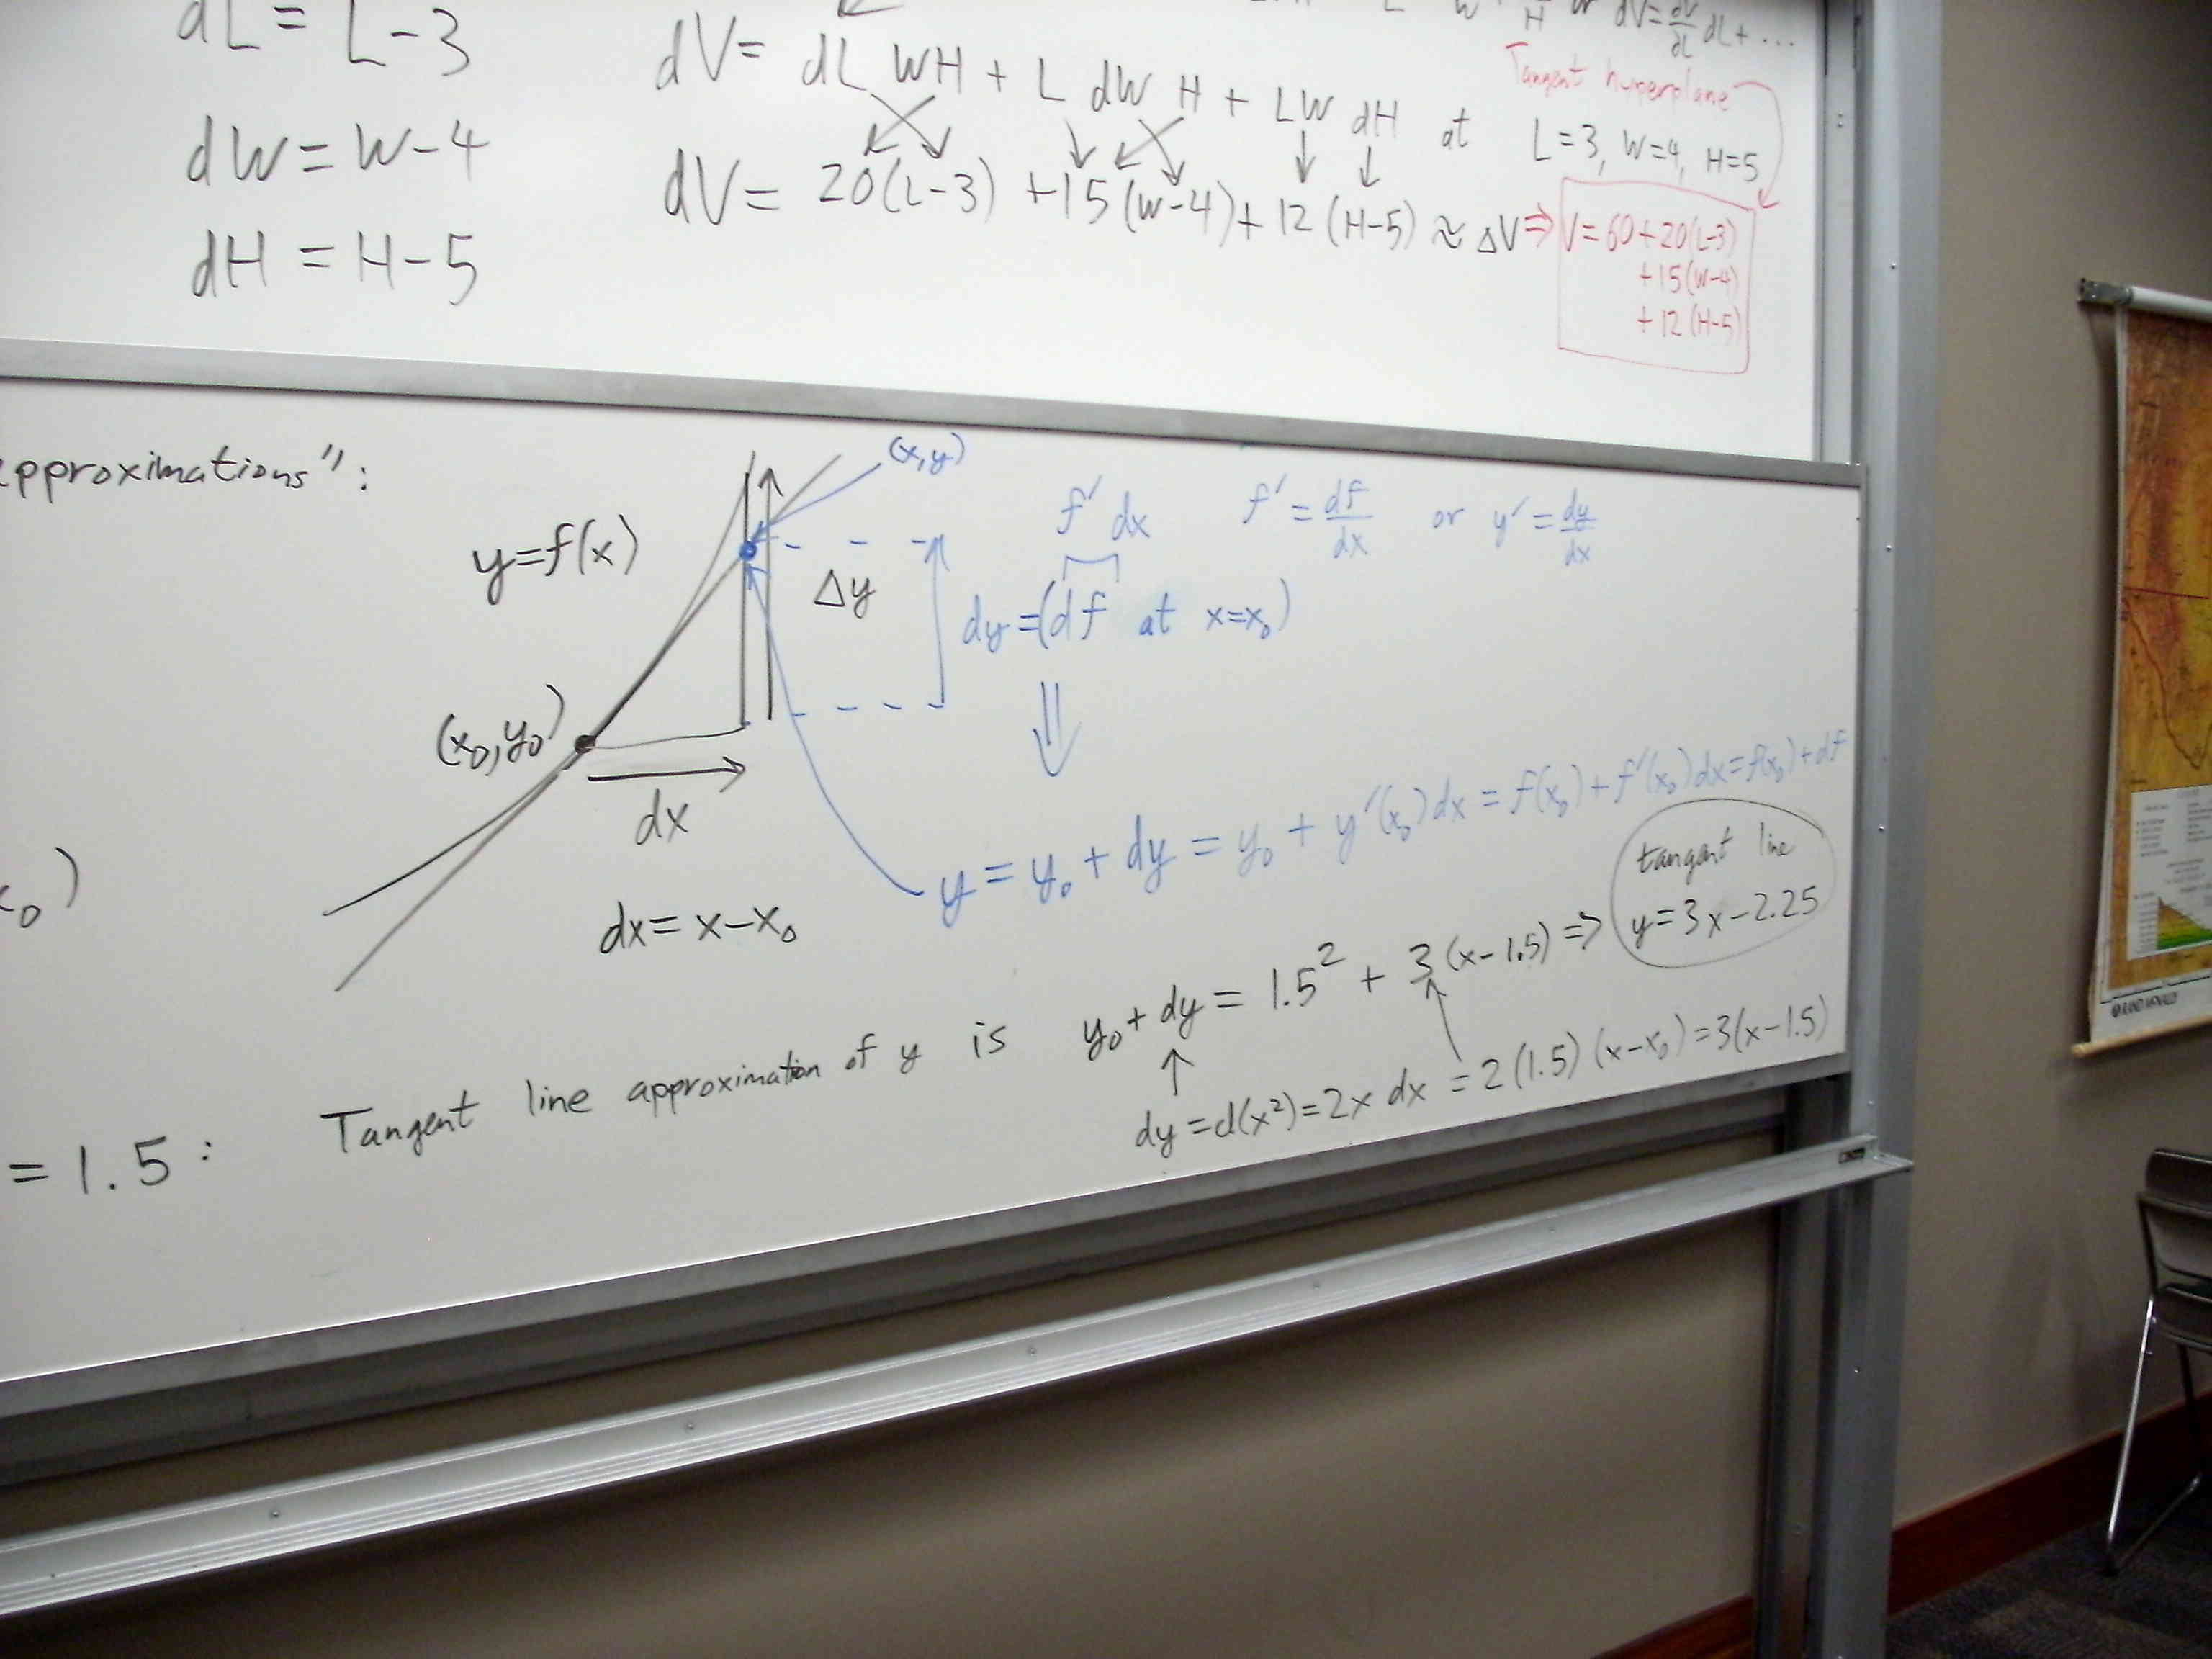 dL = L-3
dV = dV/dL dL + ...
Tangent hyperplane
dV = dL WH + L dW H + LW dH at L=3, W=4, H=5
dW = W-4
dV = 20(L-3) +15(W-4)+ 12(H-5) ≈ ΔV ⇒ V=60+20(L-3)
+15(W-4)
+12(H-5)
dH = H-5
pproximations":
(x,y)
y=f(x)
f' dx f' = df/dx or y' = dy/dx
Δy
dy=(df at x=x₀)
⇓
(x₀,y₀)
dx
y = y₀ + dy = y₀ + y'(x₀)dx = f(x₀)+f'(x₀)dx=f(x₀)+df
x₀)
dx= x-x₀
tangent line
y=3x-2.25
= 1.5: Tangent line approximation of y is y₀+dy = 1.5² + 3(x-1.5) ⇒
dy=d(x²)=2x dx = 2(1.5)(x-x₀)=3(x-1.5)
RAND MCNALLY